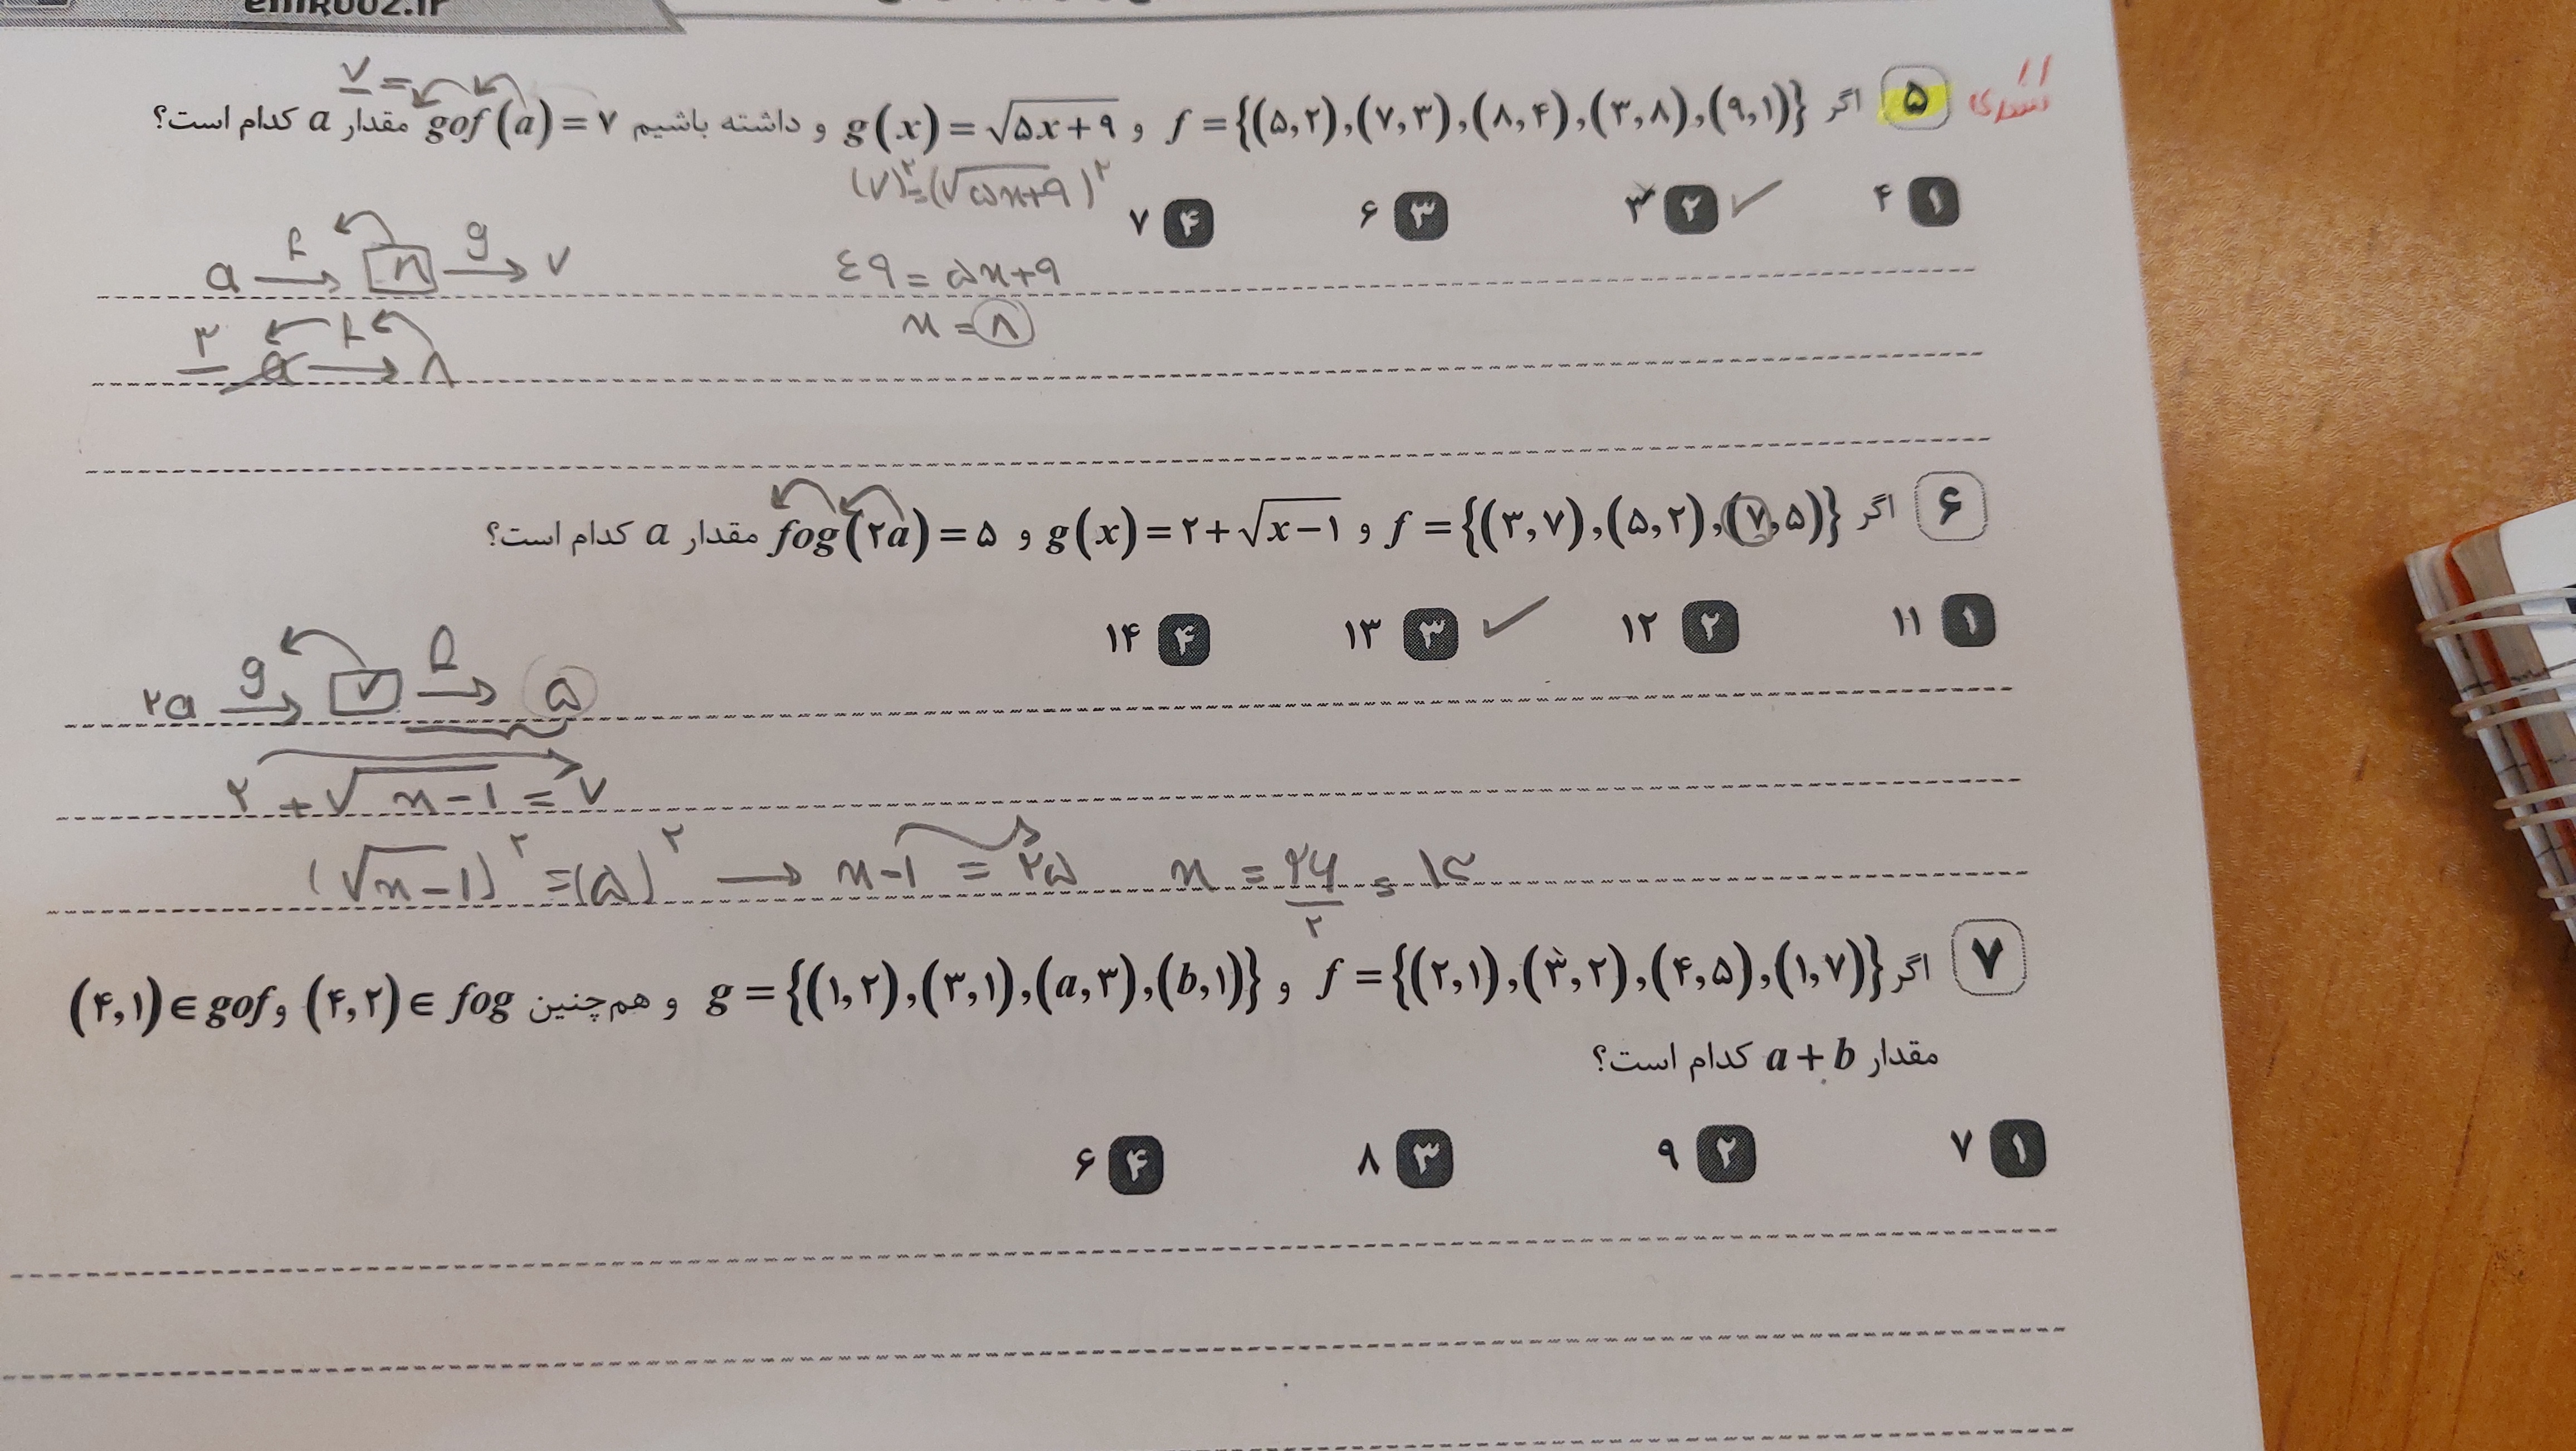 emiR002.ir
۵ اگر f = {(۵,۲),(۷,۳),(۸,۴),(۳,۸),(۹,۱)} و g(x) = √۵x+۹ و داشته باشیم gof(a) = ۷ مقدار a کدام است؟
۷ =
(۷)² = (√۵x+۹)²
۱ ۴ ۲ ۳ ۳ ۶ ۴ ۷
a f→ x g→ ۷
٤۹ = ۵x+۹
x = ۸
۳ a f→ ۸
۶ اگر f = {(۳,۷),(۵,۲),(۷,۵)} و g(x) = ۲+√x−۱ و fog(۲a) = ۵ مقدار a کدام است؟
۱ ۱۱ ۲ ۱۲ ۳ ۱۳ ۴ ۱۴
۲a g→ ۷ f→ ۵
۲ + √x−۱ = ۷
(√x−۱)² = (۵)² → x−۱ = ۲۵ x = ۲۶/۲ = ۱۳
۷ اگر f = {(۲,۱),(۳,۲),(۴,۵),(۱,۷)} و g = {(۱,۲),(۳,۱),(a,۳),(b,۱)} و هم‌چنین (۴,۲) ∈ fog و (۴,۱) ∈ gof
مقدار a + b کدام است؟
۱ ۷ ۲ ۹ ۳ ۸ ۴ ۶